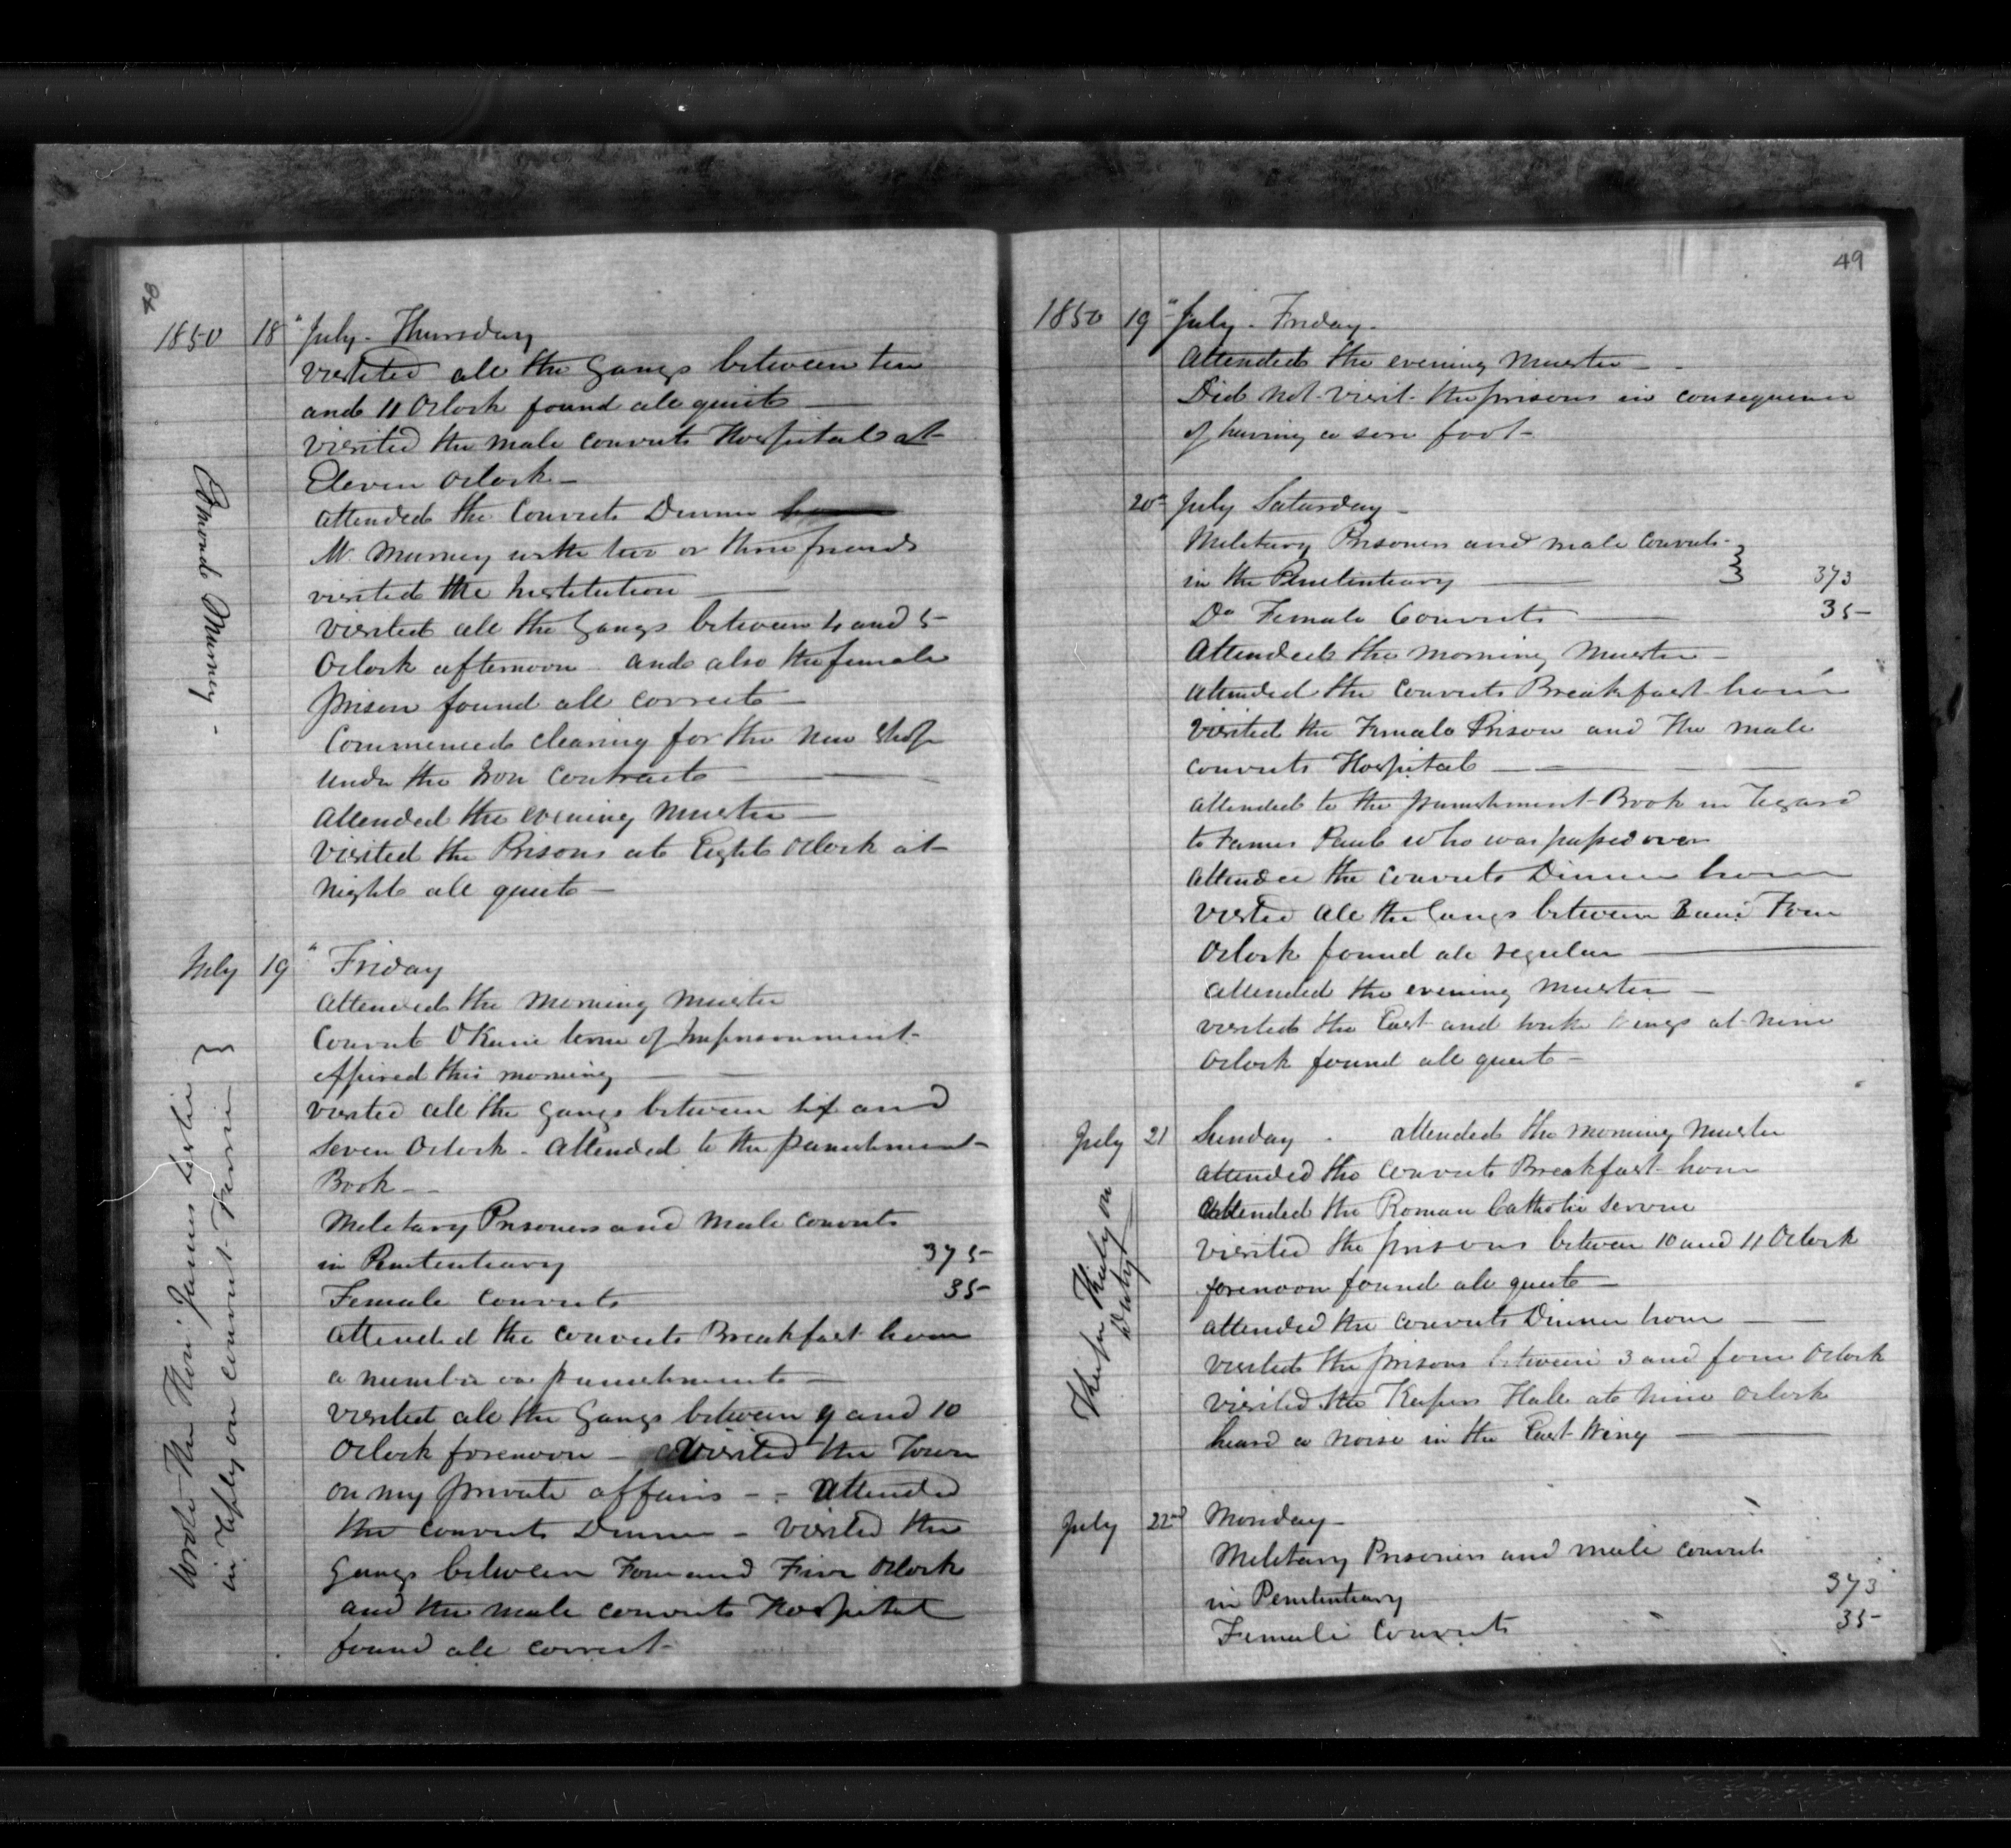 48
1850 18" July - Thursday
visited all the Gangs between ten
and 11 Oclock found all quiet
visited the male convicts Hospital at
Eleven oclock -
attended the Convicts Dinner
Mr. Murney with two or three friends
visited the Institution
Edmond Murney -
visited all the Gangs between 4 and 5
Oclock afternoon and also the female
prison found all correct
Commenced clearing for the new shop
under the Iron Contract
attended the evening muster
visited the Prisons at Eight Oclock at
night all quiet -
July 19" Friday
attended the morning muster
Convict OKane term of Imprisonment
expired this morning
visited all the Gangs between six and
Seven Oclock - attended to the punishment
Book -
Military Prisoners and Male convicts
in Penitentiary 375
Female convicts 35
attended the convicts Breakfast hour
a number on punishment
visited all the Gangs between 9 and 10
Oclock forenoon - visited the Town
on my private affairs - - Attended
the convicts Dinner - visited the
Gangs between Four and Five Oclock
and the male convicts Hospital
found all correct -
Wrote The Hon. James Leslie }
in reply on convict
49
1850 19" July - Friday -
attended the evening muster
Did not visit the prisons in consequence
of having a sore foot -
20" July Saturday -
Military Prisoners and male convicts
in the Penitentiary } 373
Do Female Convicts 35
Attended the morning muster -
attended the convicts Breakfast hour
visited the Female Prison and the male
convicts Hospital
attended to the punishment Book in regard
to James Paul who was passed over
attended the convicts Dinner hour
visited all the Gangs between 3 and Four
Oclock found all regular
attended the evening muster -
visited the East and Wings at nine
oclock found all quiet -
July 21 Sunday - attended the morning muster
attended the convicts Breakfast hour
attended the Roman Catholic Service
visited the prisons between 10 and 11 Oclock
forenoon found all quiet
attended the convicts Dinner hour
visited the prisons between 3 and four Oclock
visited the Keepers Hall at nine oclock
heard a noise in the East Wing
Keeper on
Duty
July 22nd Monday -
Military Prisoners and male convicts
in Penitentiary 373
Female Convicts 35